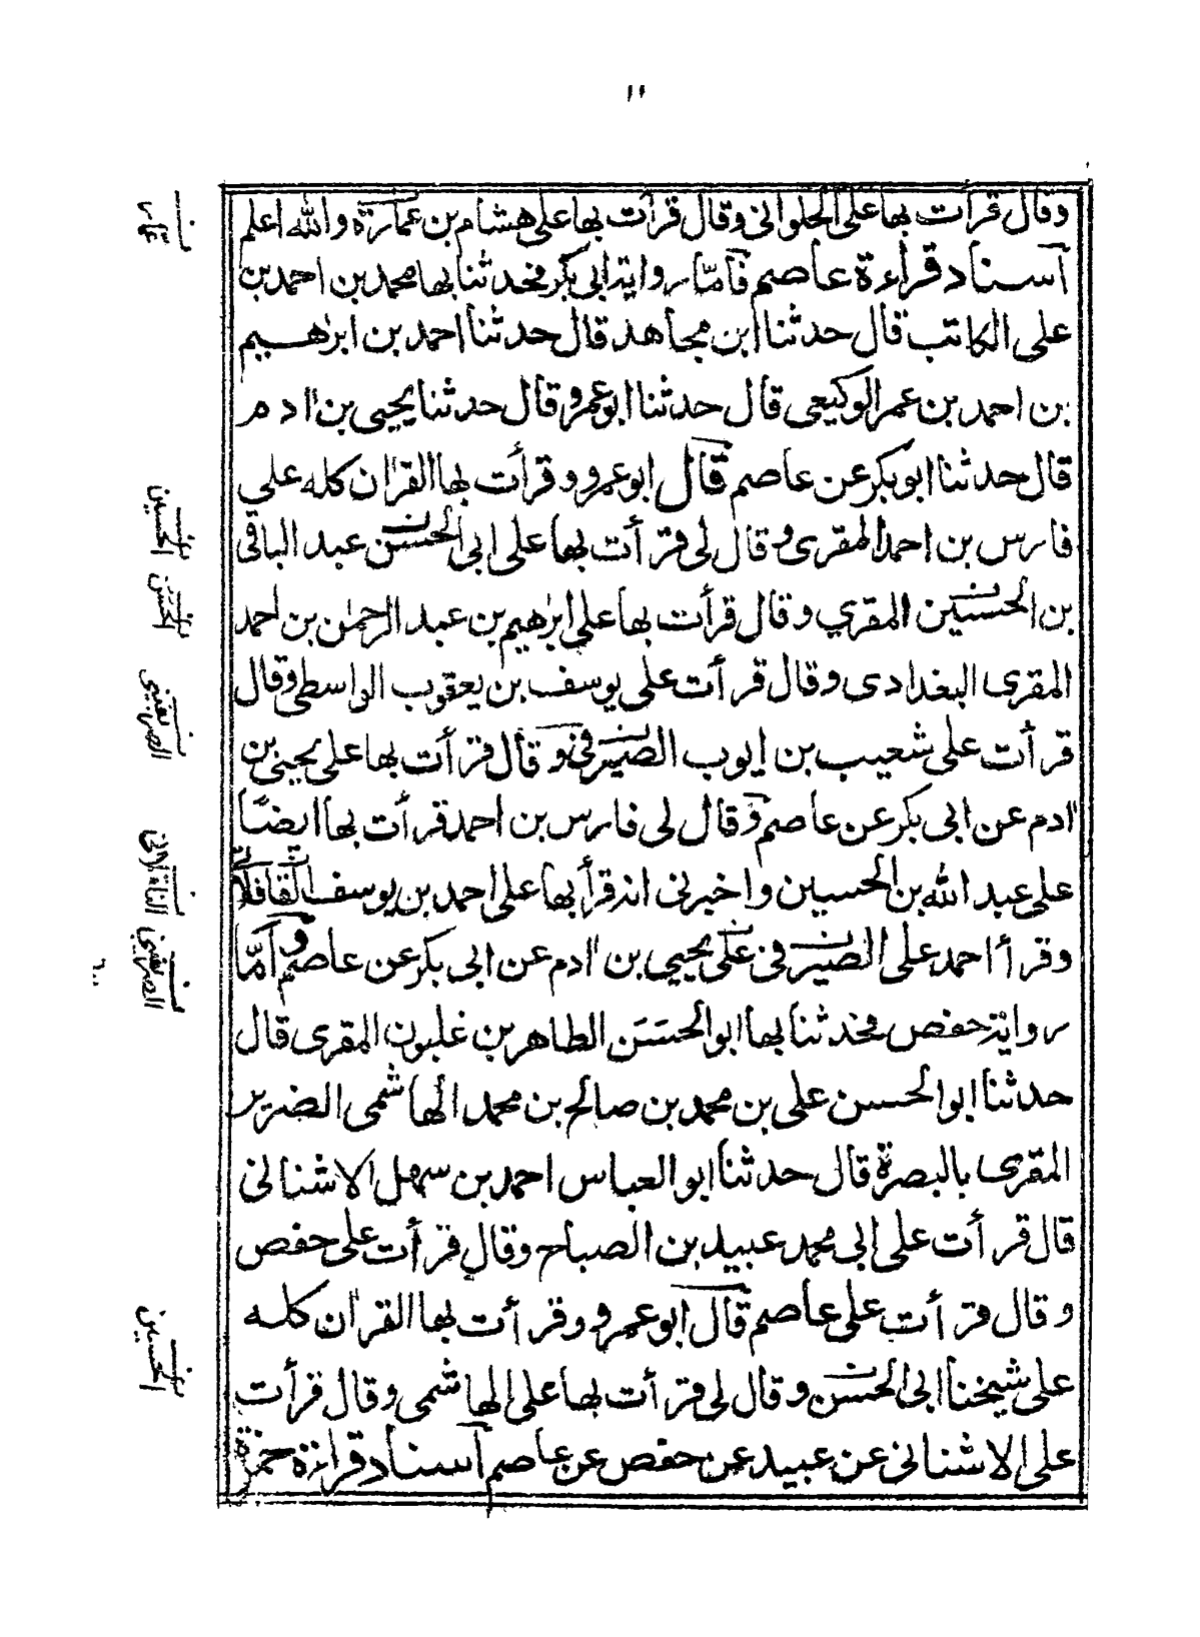 ١١
وقال قرأت بها على الحلواني وقال قرأت بها على هشام بن عمارة والله اعلم
اسناد قراءة عاصم فأمّا رواية ابى بكر فحدثنا بها محمد بن احمد بن
على الكاتب قال حدثنا ابن مجاهد قال حدثنا احمد بن ابرٰهيم
بن احمد بن عمر الوكيعى قال حدثنا ابو عمرو قال حدثنا يحيى بن ادم
قال حدثنا ابو بكر عن عاصم قال ابو عمرو وقرأت بها القرٰان كله على
فارس بن احمد المقرى وقال لى قرأت بها على ابى الحسن عبد الباقى
بن الحسين المقري وقال قرأت بها على ابرٰهيم بن عبد الرحمٰن بن احمد
المقرى البغدادى وقال قرأت على يوسف بن يعقوب الواسطى وقال
قرأت على شعيب بن ايوب الصيرفى وقال قرأت بها على يحيى بن
ادم عن ابى بكر عن عاصم وقال لى فارس بن احمد قرأت بها ايضًا
على عبد الله بن الحسين واخبرنى انه قرأ بها على احمد بن يوسف القافلانى
وقرأ احمد على الصيرفى على يحيى بن ادم عن ابى بكر عن عاصم وأمّا
رواية حفص فحدثنا بها ابو الحسَن الطاهر بن غلبون المقرى قال
حدثنا ابو الحسن على بن محمد بن صالح بن محمد الهاشمى الضرير
المقرى بالبصرة قال حدثنا ابو العباس احمد بن سهل الاشنانى
قال قرأت على ابى محمد عبيد بن الصباح وقال قرأت على حفص
وقال قرأت على عاصم قال ابو عمرو وقرأت بها القرٰان كله
على شيخنا ابى الحسن وقال لى قرأت بها على الهاشمى وقال قرأت
على الاشنانى عن عبيد عن حفص عن عاصم اسناد قراءة حمزة
الحسين
الحسن
الصريفينى
الصريفينى
الحسين